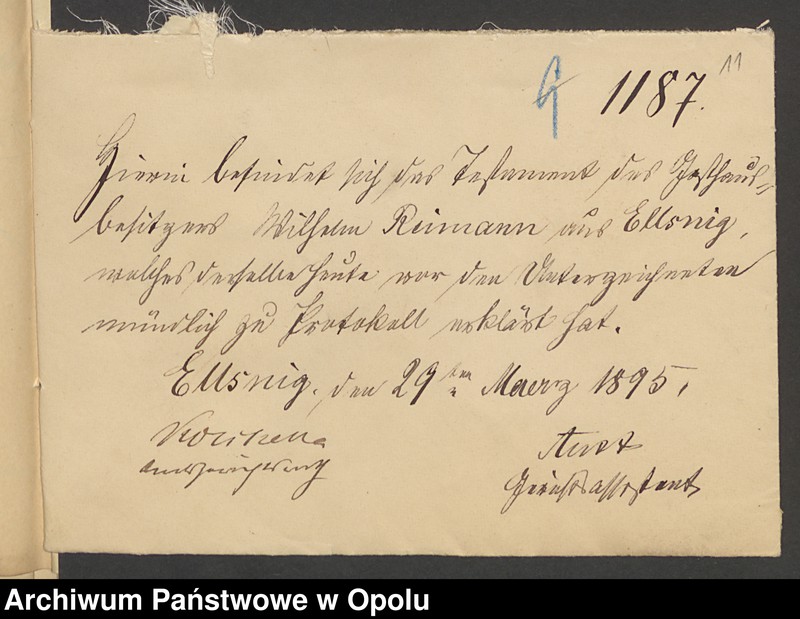 11
G 1187.
Hierin befindet sich das Testament des Gasthaus-
besitzers Wilhelm Reimann aus Ellsnig,
welches derselbe heute vor den Unterzeichneten
mündlich zu Protokoll erklärt hat.
Ellsnig, den 29ten Maerz 1895,
Amtsgerichtsrath
Gerichtsassistent
Archiwum Państwowe w Opolu